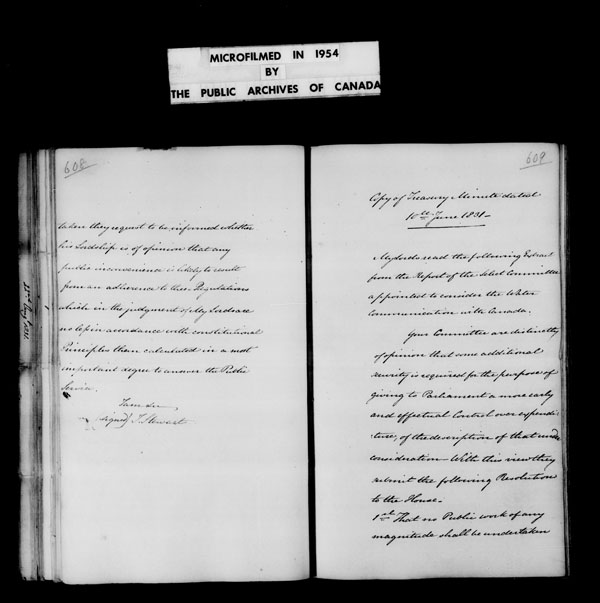 MICROFILMED IN 1954
BY
THE PUBLIC ARCHIVES OF CANADA
608
taken they request to be informed whether
his Lordship is of opinion that any
public inconvenience is likely to result
from an adherence to these Regulations
which in the judgment of My Lords are
no less in accordance with constitutional
Principles than calculated in a most
important degree to answer the Public
Service.
I am Sir
signed J. Stewart
609
Copy of Treasury Minute dated
10th June 1831 -
My Lords read the following Extract
from the Report of the Select Committee
appointed to consider the Water
Communication with Canada.
Your Committee are distinctly
of opinion that some additional
security is required for the purpose of
giving to Parliament a more early
and effectual Control over expendi-
ture, of the description of that under
consideration - With this view they
submit the following Resolution
to the House -
1st That no Public work of any
magnitude shall be undertaken